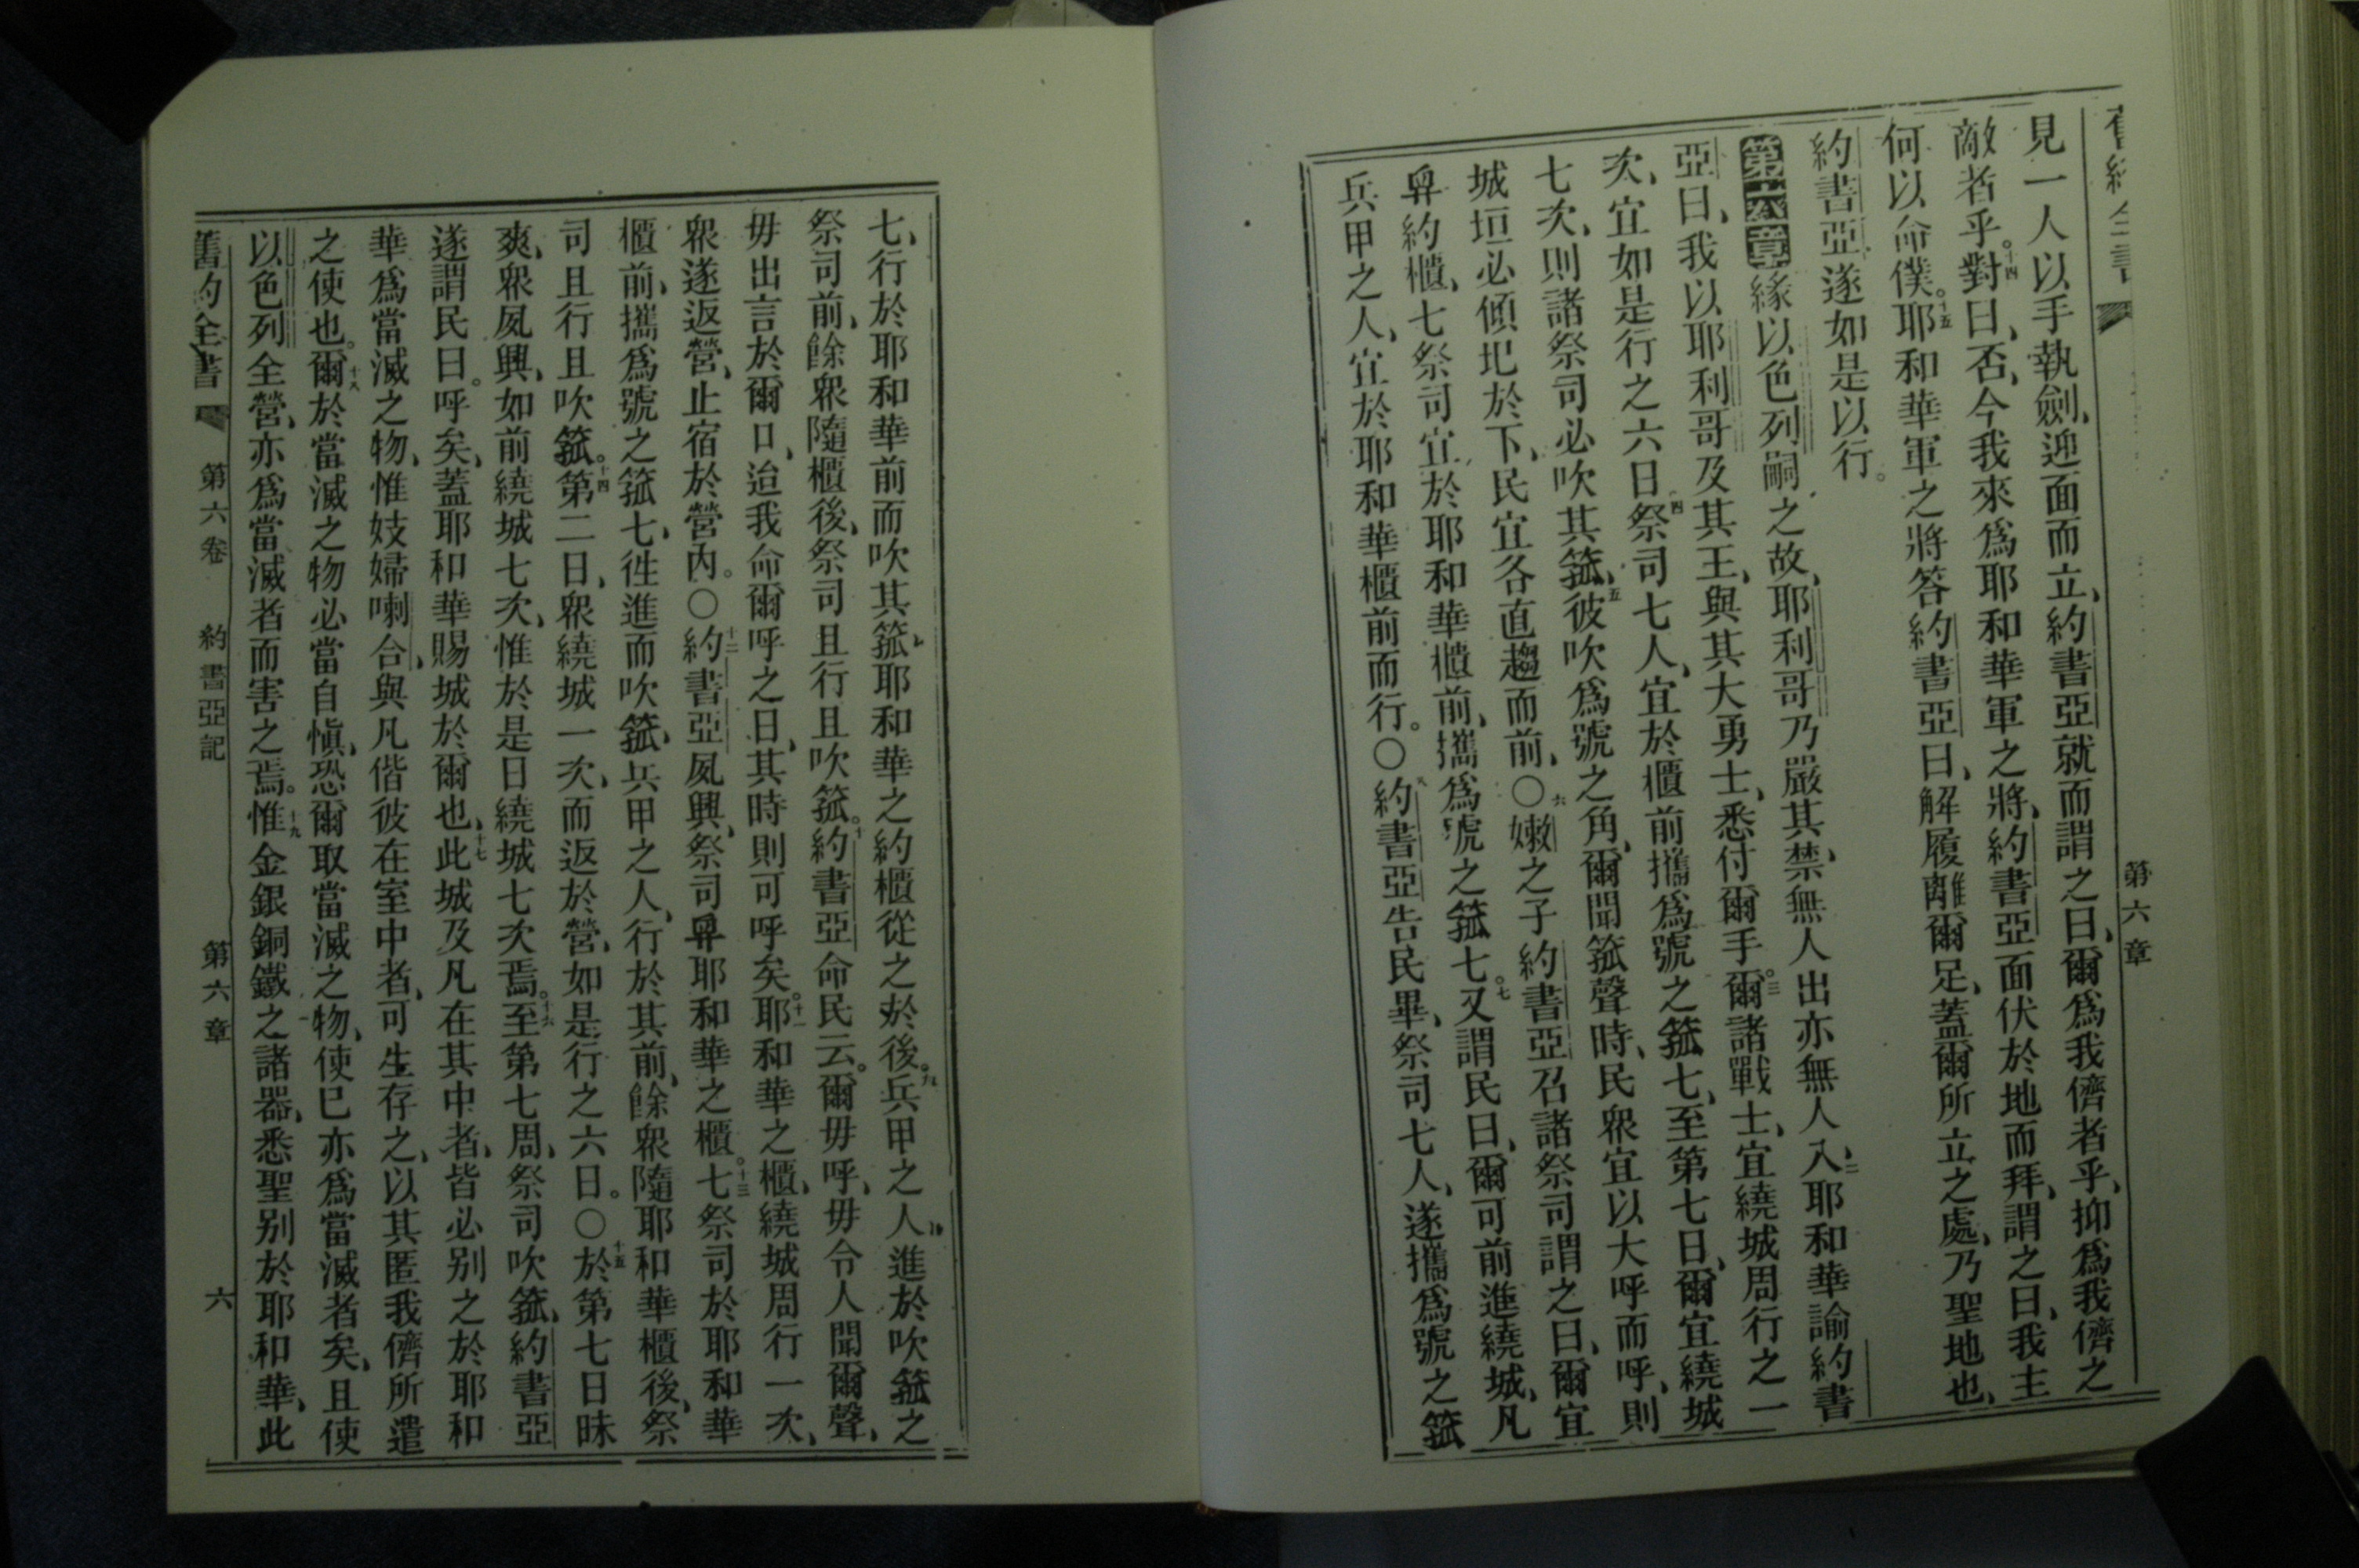 舊約全書 第六章
見一人以手執劍、迎面而立、約書亞就而謂之曰、爾爲我儕者乎、抑爲我儕之
敵者乎。十四對曰、否、今我來爲耶和華軍之將、約書亞面伏於地而拜、謂之曰、我主
何以命僕。十五耶和華軍之將答約書亞曰、解履離爾足、蓋爾所立之處、乃聖地也、
約書亞遂如是以行。
第六章緣以色列嗣之故、耶利哥乃嚴其禁、無人出亦無人入、二耶和華諭約書
亞曰、我以耶利哥及其王、與其大勇士、悉付爾手。三爾諸戰士、宜繞城周行之一
次、宜如是行之六日、四祭司七人、宜於櫃前攜爲號之箛七、至第七日、爾宜繞城
七次、則諸祭司必吹其箛、五彼吹爲號之角、爾聞箛聲時、民衆宜以大呼而呼、則
城垣必傾圯於下、民宜各直趨而前、○六嫩之子約書亞召諸祭司謂之曰、爾宜
舁約櫃、七祭司宜於耶和華櫃前、攜爲號之箛七。七又謂民曰、爾可前進繞城、凡
兵甲之人、宜於耶和華櫃前而行。○八約書亞告民畢、祭司七人、遂攜爲號之箛
七、行於耶和華前而吹其箛、耶和華之約櫃從之於後。九兵甲之人、進於吹箛之
祭司前、餘衆隨櫃後、祭司且行且吹箛。十約書亞命民云。爾毋呼、毋令人聞爾聲、
毋出言於爾口、迨我命爾呼之日、其時則可呼矣。十一耶和華之櫃、繞城周行一次、
衆遂返營、止宿於營內。○十二約書亞夙興、祭司舁耶和華之櫃。十三七祭司於耶和華
櫃前、攜爲號之箛七、徃進而吹箛、兵甲之人、行於其前、餘衆隨耶和華櫃後、祭
司且行且吹箛。十四第二日、衆繞城一次、而返於營、如是行之六日。○十五於第七日昧
爽、衆夙興、如前繞城七次、惟於是日繞城七次焉。十六至第七周、祭司吹箛、約書亞
遂謂民曰。呼矣、蓋耶和華賜城於爾也、十七此城及凡在其中者、皆必別之於耶和
華爲當滅之物、惟妓婦喇合、與凡偕彼在室中者、可生存之、以其匿我儕所遣
之使也。十八爾於當滅之物必當自愼、恐爾取當滅之物、使己亦爲當滅者矣、且使
以色列全營、亦爲當滅者而害之焉。十九惟金銀銅鐵之諸器、悉聖別於耶和華、此
舊約全書 第六卷 約書亞記 第六章 六